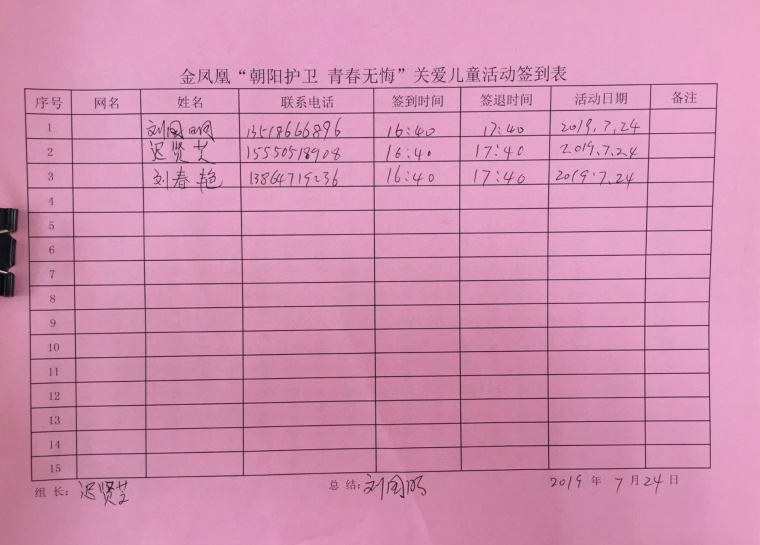 金凤凰“朝阳护卫 青春无悔”关爱儿童活动签到表
序号 网名 姓名 联系电话 签到时间 签退时间 活动日期 备注
1 刘国明 13518666896 16:40 17:40 2019.7.24
2 迟贤芝 15550518908 16:40 17:40 2019.7.24
3 刘春艳 13864719236 16:40 17:40 2019.7.24
4
5
6
7
8
9
10
11
12
13
14
15
组 长: 迟贤芝 总 结: 刘国明 2019 年 7 月 24 日